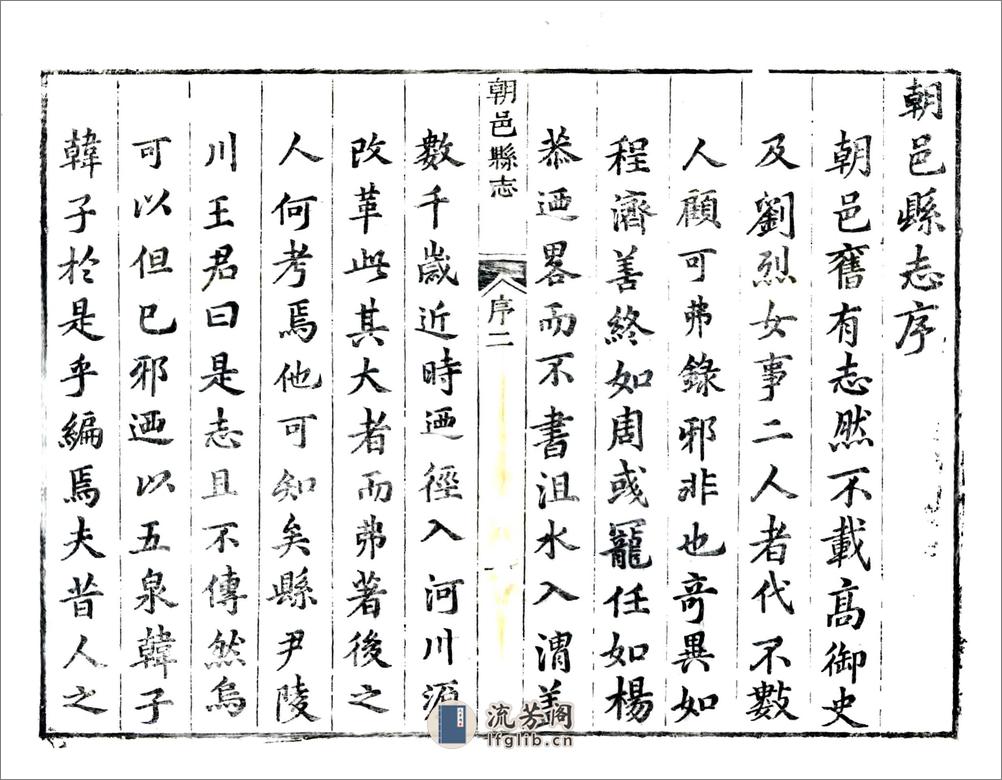 朝邑縣志序
朝邑舊有志然不載髙御史
及劉烈女事二人者代不數
人顧可弗錄邪非也竒異如
程濟善終如周彧寵任如楊
恭迺畧而不書沮水入渭盖
朝邑縣志
序二
數千歲近時迺徑入河川源
改革此其大者而弗著後之
人何考焉他可知矣縣尹陵
川王君曰是志且不傳然烏
可以但已邪迺以五泉韓子
韓子於是乎編焉夫昔人之
流芳閣
lfglib.cn